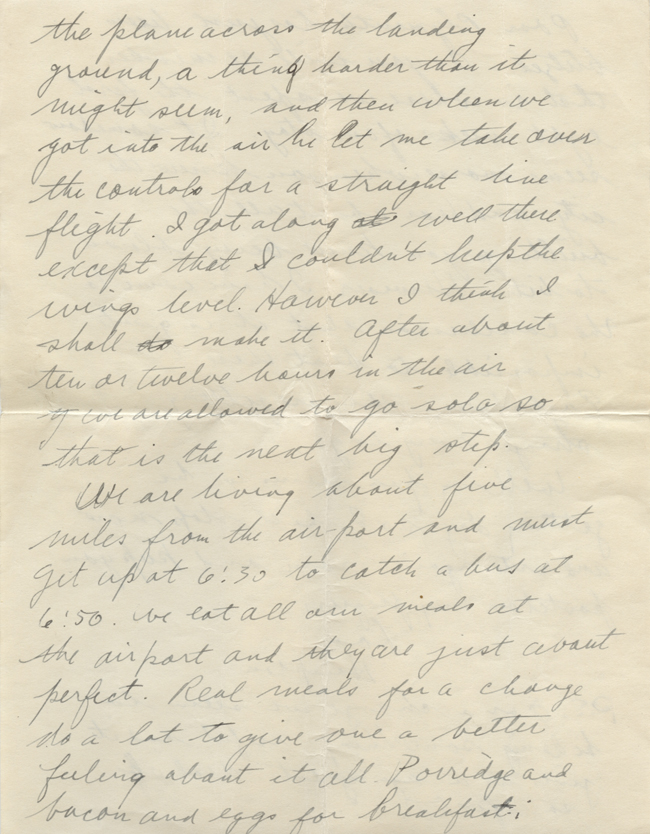 the plane across the landing
ground, a thing harder than it
might seem, and then when we
got into the air he let me take over
the controls for a straight line
flight. I got along at well there
except that I couldn't keep the
wings level. However I think I
shall do make it. After about
ten or twelve hours in the air
we are allowed to go solo so
that is the next big step.
We are living about five
miles from the air-port and must
get up at 6:30 to catch a bus at
6:50. We eat all our meals at
the airport and they are just about
perfect. Real meals for a change
do a lot to give one a better
feeling about it all. Porridge and
bacon and eggs for breakfast;